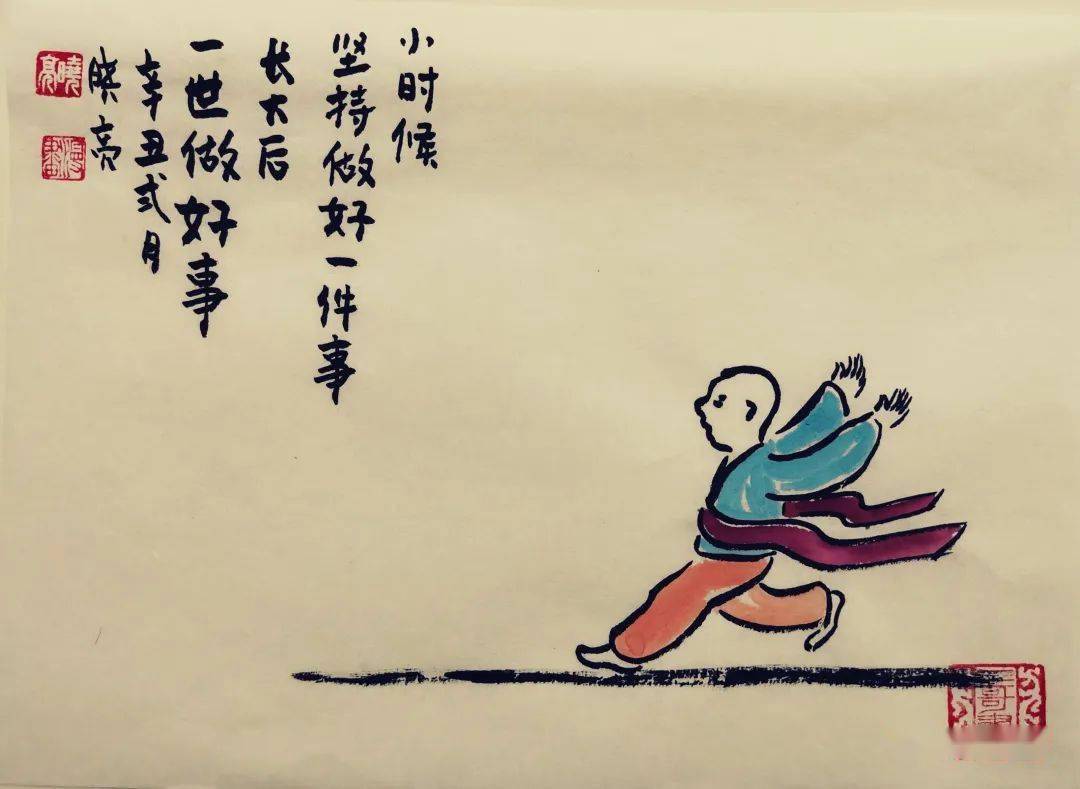 小时候
坚持做好一件事
长大后
一世做好事
辛丑弍月
晓亮